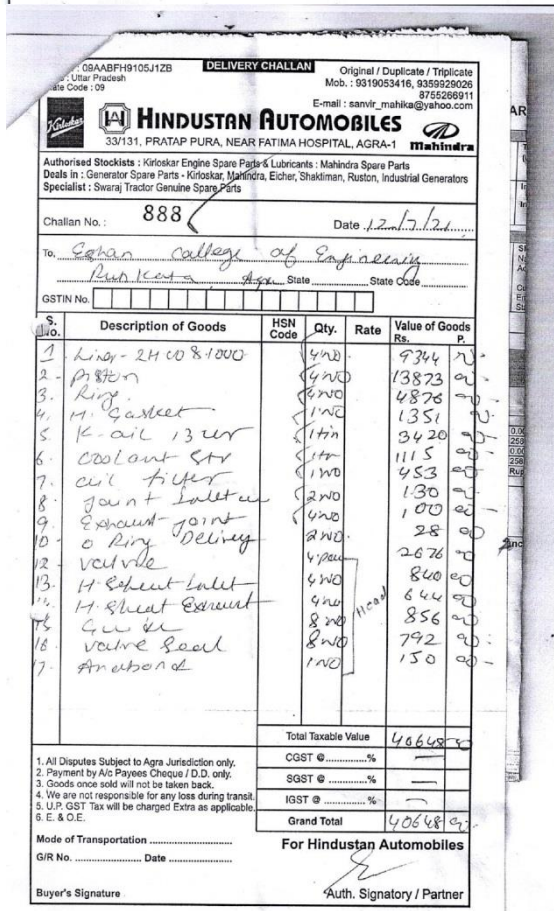 : 09AABFH9105J1ZB
DELIVERY CHALLAN
Original / Duplicate / Triplicate
: Uttar Pradesh
Code : 09
Mob. : 9319053416, 9359929026
8755266911
E-mail : sanvir_mahika@yahoo.com
Kirloskar
HINDUSTAN AUTOMOBILES
Mahindra
33/131, PRATAP PURA, NEAR FATIMA HOSPITAL, AGRA-1
Authorised Stockists : Kirloskar Engine Spare Parts & Lubricants : Mahindra Spare Parts
Deals in : Generator Spare Parts - Kirloskar, Mahindra, Eicher, Shaktiman, Ruston, Industrial Generators
Specialist : Swaraj Tractor Genuine Spare Parts
Challan No. : 888 Date 12/7/21
To, College of Engineering
Agra State State Code
GSTIN No.
S. No. Description of Goods HSN Code Qty. Rate Value of Goods Rs. P.
1 Liner - 4 NO 9344
2 - Piston 4 NO 13873
3. Ring 4 NO 4876
4. H. Gasket 1 NO 1351
5. K-oil 1 tin 3420
6. Coolant 1115
7. oil filter 1 NO 453
8. Joint Inlet 2 NO 130
9. Exhaust Joint 4 NO 100
10 - O Ring Delivery 2 NO 28
12 - Valve 2676
13. 4 NO 840
H. Exhaust 4 NO 644
8 NO 856
16. Valve Seal 8 NO 792
17. Anabond 1 NO 150
Head
Total Taxable Value 40648
CGST @ ..............%
SGST @ ..............%
IGST @ ..............%
Grand Total 40648
1. All Disputes Subject to Agra Jurisdiction only.
2. Payment by A/c Payees Cheque / D.D. only.
3. Goods once sold will not be taken back.
4. We are not responsible for any loss during transit.
5. U.P. GST Tax will be charged Extra as applicable.
6. E. & O.E.
Mode of Transportation
G/R No. Date
For Hindustan Automobiles
Buyer's Signature
Auth. Signatory / Partner